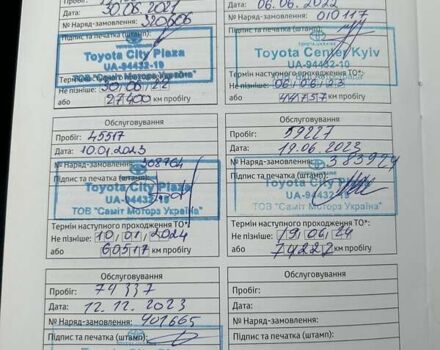 Дата: 30.06.2021
№ Наряд-замовлення: 320606
Підпис та печатка (штамп):
Toyota City Plaza
UA-94432-10
ТОВ "Саміт Моторз Україна"
Термін наступного проходження ТО*:
Не пізніше: 30 06 22
або 27400 км пробігу
Дата: 06.06.2022
№ Наряд-замовлення: 010117
Підпис та печатка (штамп):
Toyota Center Kyiv
UA-94432-10
Термін наступного проходження ТО*:
Не пізніше: 06 06 23
або км пробігу
Обслуговування
Пробіг: 45517
Дата: 10.01.2023
№ Наряд-замовлення: 368764
Підпис та печатка (штамп):
Toyota City Plaza
UA-94432-10
ТОВ "Саміт Моторз Україна"
Термін наступного проходження ТО*:
Не пізніше: 10 01 2024
або 60517 км пробігу
Обслуговування
Пробіг: 59227
Дата: 19.06.2023
№ Наряд-замовлення: 383924
Підпис та печатка (штамп):
Toyota City Plaza
UA-94432-10
ТОВ "Саміт Моторз Україна"
Термін наступного проходження ТО*:
Не пізніше: 19 06 24
або 74227 км пробігу
Обслуговування
Пробіг: 74337
Дата: 12.12.2023
№ Наряд-замовлення: 401665
Підпис та печатка (штамп):
Обслуговування
Пробіг:
Дата:
№ Наряд-замовлення:
Підпис та печатка (штамп):